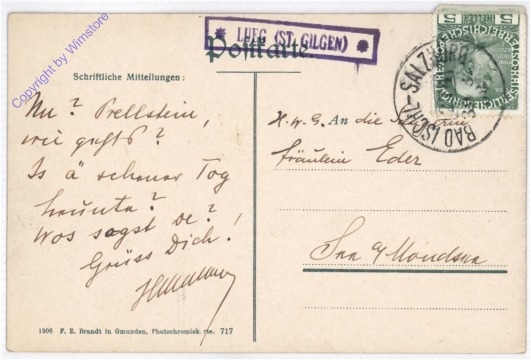 Copyright by Wimstore
* LUEG (ST. GILGEN) *
Postkarte.
5 HELLER 5
BAD ISCHL SALZBURG
Schriftliche Mitteilungen:
Nu? Prellstein,
wie gehts?
Is á schener Tog
heunte?
Wos sagst de?
Grüss Dich!
H. w. G. An die
Fräulein Eder
See a/ Mondsee
1906 F. E. Brandt in Gmunden, Photochromiek. No. 717